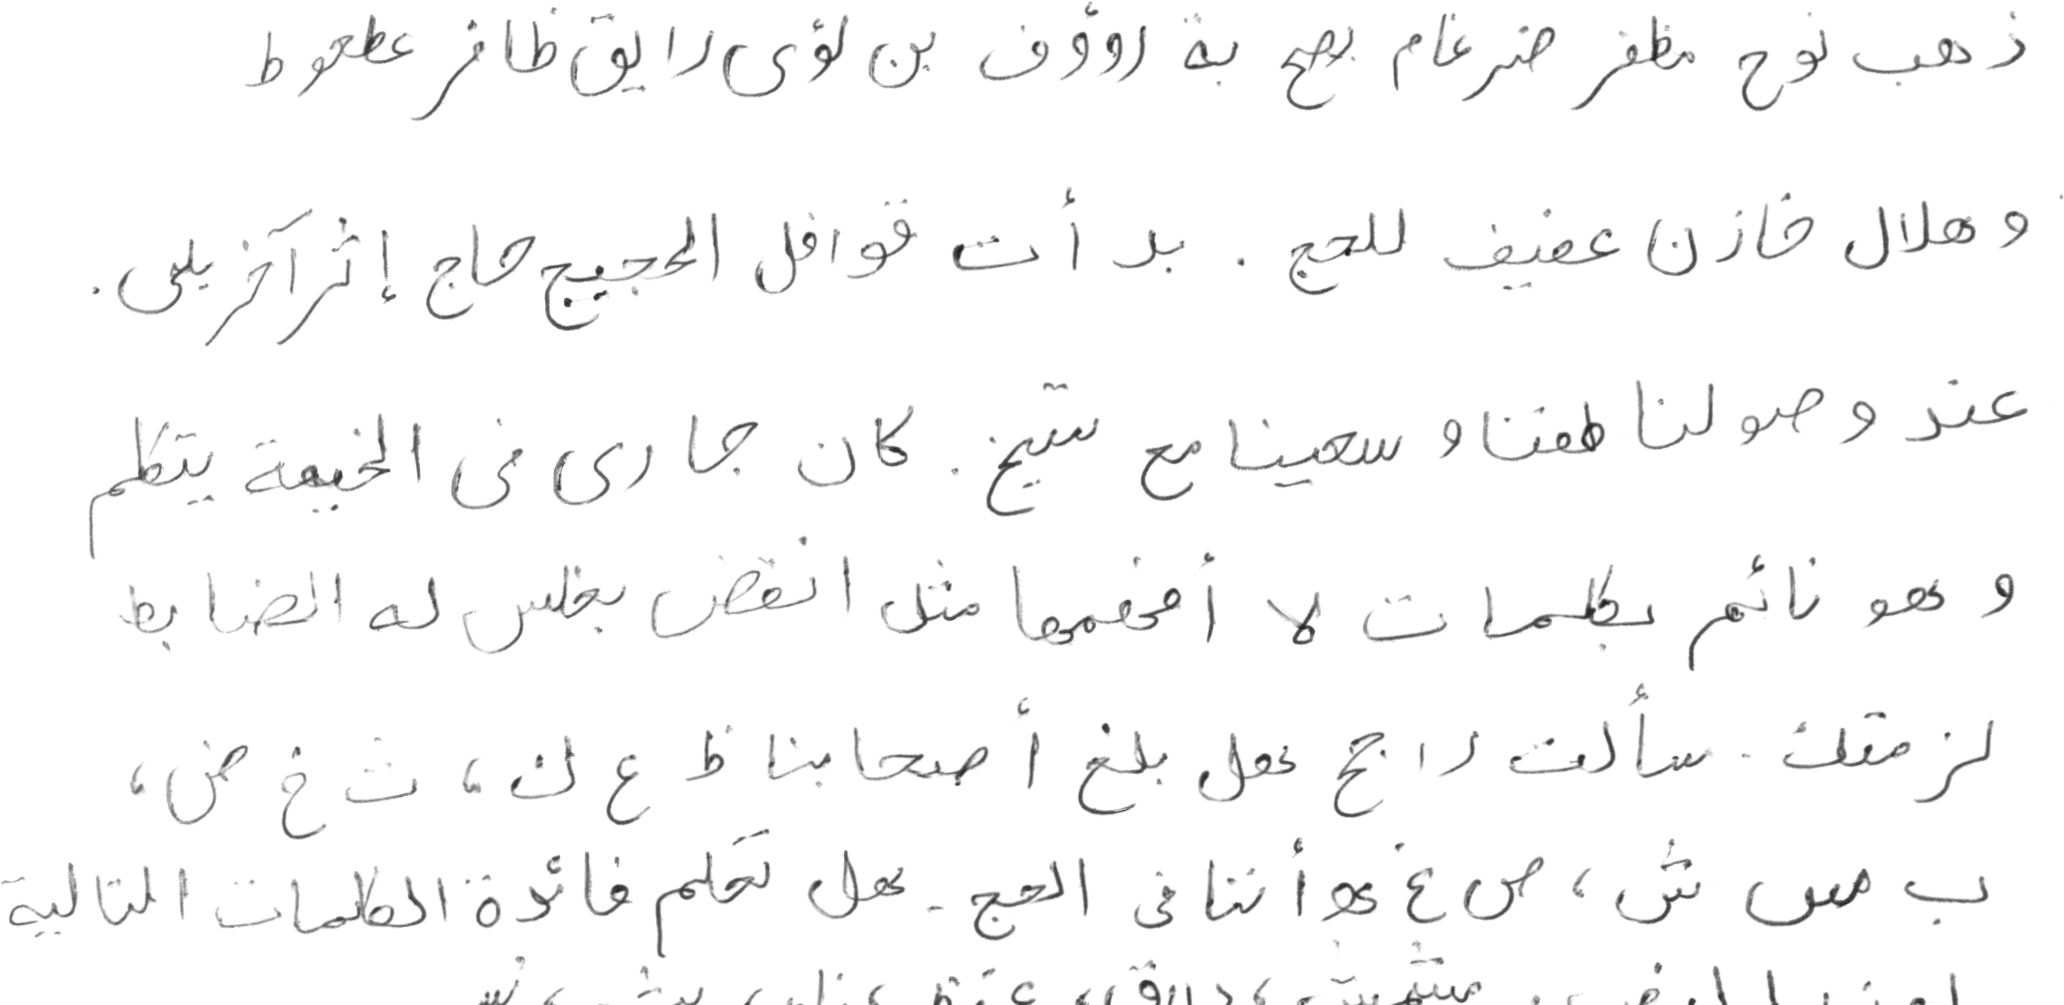 ذهب نوح مظفر ضرغام بصحبة رؤوف بن لؤى رايق ظافر عطعوط
وهلال خازن عفيف للحج . بدأت قوافل الحجيج حاج إثر آخر يلى .
عند وصولنا طفنا وسعينا مع شيخ . كان جارى فى الخيمة يتكلم
وهو نائم بكلمات لا أفهمها مثل انقض بغلس له الضابط
لزمتك . سألت راجح هل بلغ أصحابنا ظ ع ك ، ث خ ض ،
ب س ش ، ص غ ه أننا فى الحج . هل تعلم فائدة الكلمات التالية